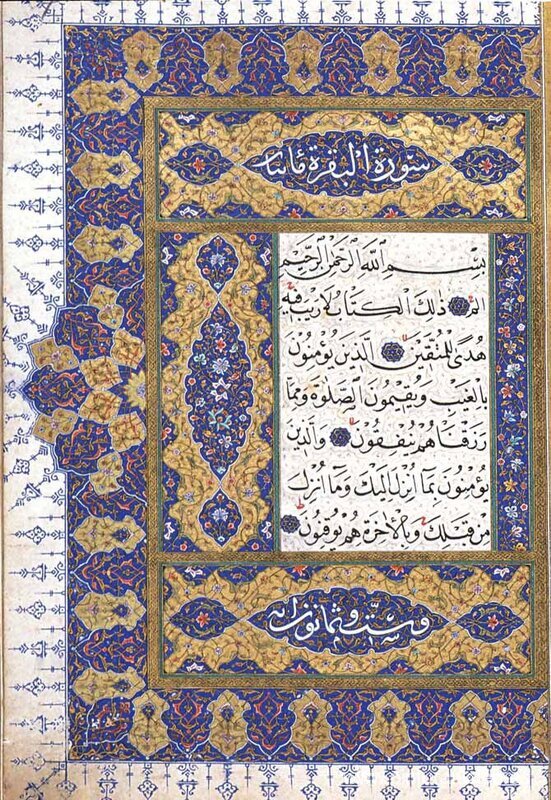 سورة البقرة مائتا
بِسْمِ اللهِ الرَّحْمٰنِ الرَّحِيْمِ
الم ذٰلِكَ الْكِتَابُ لَا رَيْبَ فِيْهِ
هُدًى لِلْمُتَّقِيْنَ الَّذِيْنَ يُؤْمِنُوْنَ
بِالْغَيْبِ وَيُقِيْمُوْنَ الصَّلٰوةَ وَمِمَّا
رَزَقْنَاهُمْ يُنْفِقُوْنَ وَالَّذِيْنَ
يُؤْمِنُوْنَ بِمَا اُنْزِلَ اِلَيْكَ وَمَا اُنْزِلَ
مِنْ قَبْلِكَ وَبِالْاٰخِرَةِ هُمْ يُوْقِنُوْنَ
وست وثمانون اية